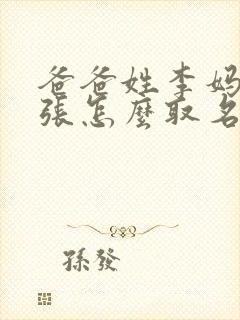 爸爸姓李妈
張怎麼取名
孫發